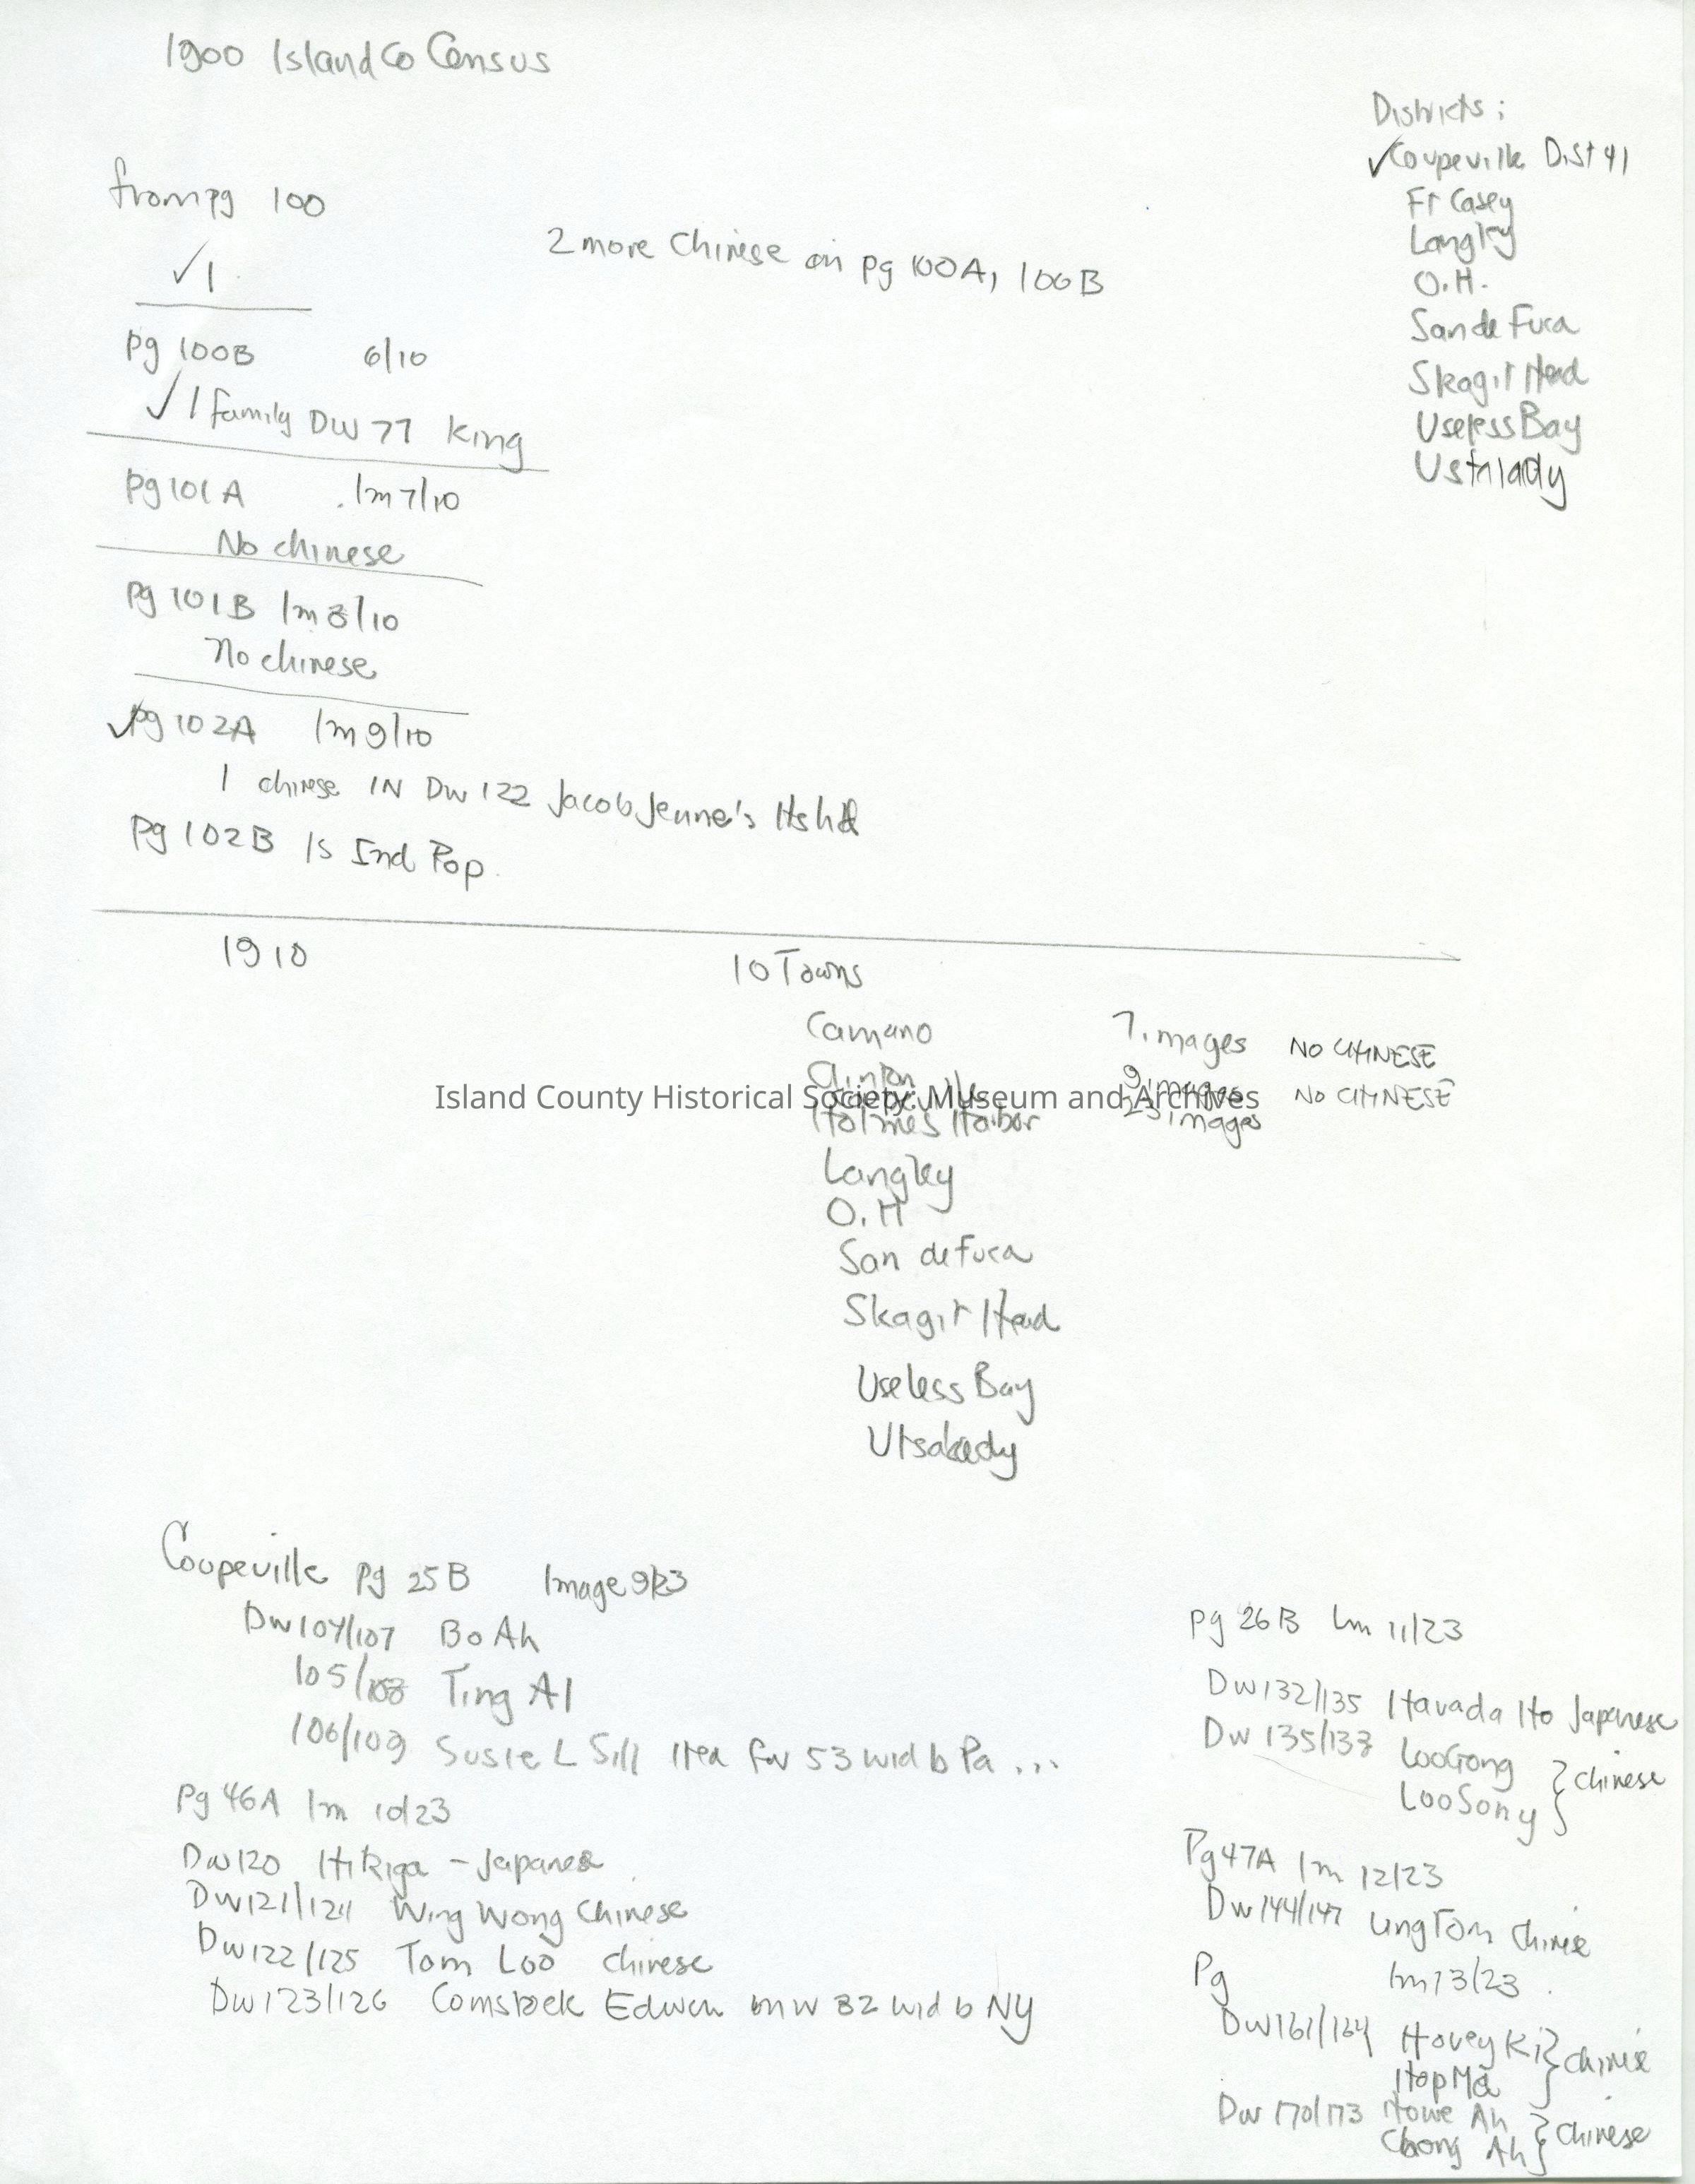 1900 Island Co Census
Districts:
✓Coupeville Dist 41
Ft Casey
Langley
O.H.
San de Fuca
Skagit Head
Useless Bay
Ustalady
from pg 100
✓1
2 more Chinese on pg 100A, 100B
pg 100B 6/10
✓ 1 family DW 77 King
pg 101A Im 7/10
No chinese
pg 101B Im 8/10
No chinese
✓pg 102A Im 9/10
1 chinese IN Dw 122 Jacob Jenne's Hshld
pg 102B Is Ind Pop.
1910
10 Towns
Camano 7 images NO CHINESE
Clinton 9 images NO CHINESE
Island County Historical Society: Museum and Archives
Holmes Harbor 23 images
Langley
O.H
San de Fuca
Skagit Head
Useless Bay
Utsalady
Coupeville pg 25B Image 9/23
Dw 104/107 Bo Ah
105/108 Ting Al
106/109 Susie L Sill Hea for 53 wid b Pa ...
Pg 46A Im 10/23
Dw 120 Hikiga - Japanese
Dw 121/124 Wing Wong Chinese
Dw 122/125 Tom Loo chinese
Dw 123/126 Comstock Edwen mw 82 wid b NY
pg 26B Im 11/23
Dw 132/135 Havada Ito Japanese
Dw 135/138 Loo Gong
Loo Sony } chinese
Pg 47A Im 12/23
Dw 144/147 Ung Tom Chinese
Pg Im 13/23
Dw 161/164 Hovey Ki
Hop Ma } chinese
Dw 170/173 Howe Ah
Chong Ah } Chinese